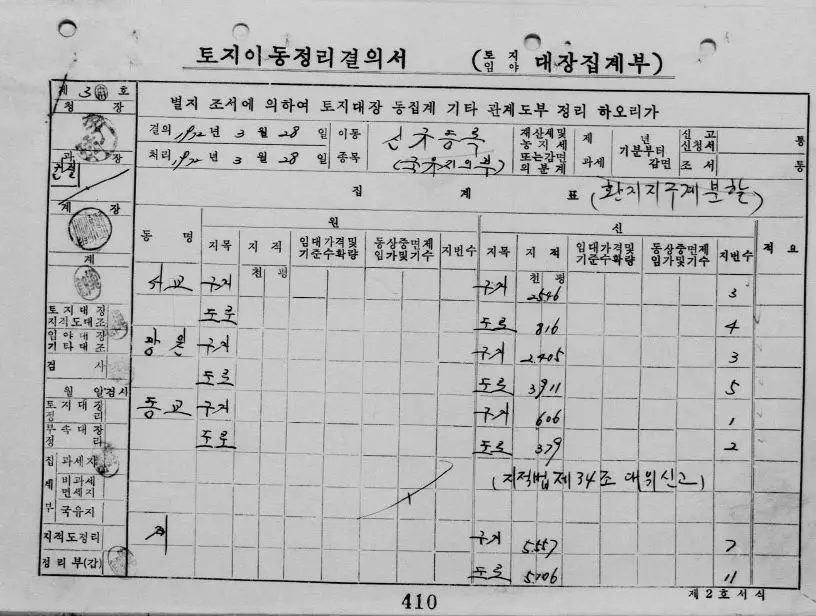 토지이동정리결의서 (토지 임야 대장집계부)
제 3 호
청 장
별지 조서에 의하여 토지대장 동집계 기타 관계도부 정리 하오리가
결의 1972년 3 월 28 일 이동 신규등록 재산세및 농지세 또는감면의 분계 제 년 기분부터 신고 신청서 통
처리 1972년 3 월 28 일 종목 (국유지의부) 과세 감면 조 서 통
과 장
집 계 표 (환지지구계분할)
계 장
동 명 원 신 적 요
지목 지 적 임대가격및 기준수확량 동상중면제 임가및기수 지번수 지목 지 적 임대가격및 기준수확량 동상중면제 임가및기수 지번수
계
천 평 천 평
서교 구거 구거 2546 3
도로 도로 816 4
토지대장 지적도대조
광원 구거 구거 2405 3
임야대장 기타대조
도로 도로 3911 5
검 사
월 일 검사
동교 구거 구거 606 1
토지대장 정 리
도로 도로 379 2
부속대장 정 리
(지적법 제34조 대위신고)
집 계 부
과세지
비과세 면세지
국유지
계 구거 5557 7
지적도정리
도로 5106 11
정리부(갑)
제2호서식
410